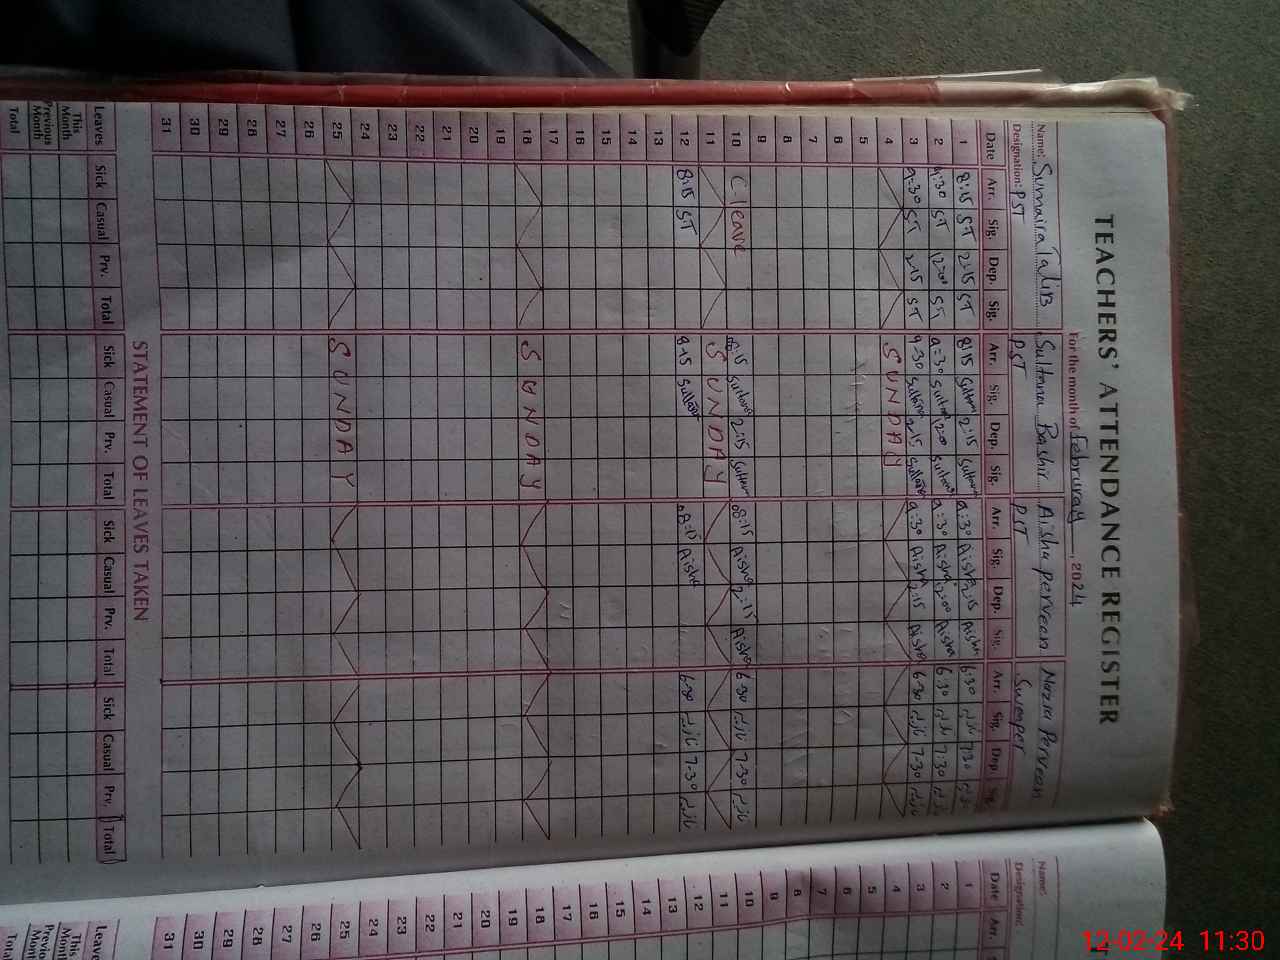 TEACHERS' ATTENDANCE REGISTER
For the month of February, 2024
Name: Sumaira Talib Sultana Bashir Aisha Perveen Nazia Perveen
Designation: PST PST PST Sweeper
Date Arr. Sig. Dep. Sig. Arr. Sig. Dep. Sig. Arr. Sig. Dep. Sig. Arr. Sig. Dep. Sig.
1 8:15 ST 2:15 ST 8:15 Sultana 2:15 Sultana 9:30 Aisha 2:15 Aisha 6:30 نازیہ 7:30 نازیہ
2 9:30 ST 12:00 ST 9:30 Sultana 12:00 Sultana 9:30 Aisha 12:00 Aisha 6:30 نازیہ 7:30 نازیہ
3 9:30 ST 2:15 ST 9-30 Sultana 2:15 Sultana 9:30 Aisha 2:15 Aisha 6-30 نازیہ 7-30 نازیہ
4 SUNDAY
5
6
7
8
9
10 C. leave 08:15 Sultana 2:15 Sultana 08:15 Aisha 2:15 Aisha 6-30 نازیہ 7-30 نازیہ
11 SUNDAY
12 8:15 ST 8-15 Sultana 08:15 Aisha 6-30 نازیہ 7-30 نازیہ
13
14
15
16
17
18 SUNDAY
19
20
21
22
23
24
25 SUNDAY
26
27
28
29
30
31
STATEMENT OF LEAVES TAKEN
Leaves Sick Casual Prv. Total Sick Casual Prv. Total Sick Casual Prv. Total Sick Casual Prv. Total
This Month
Previous Month
Total
Name:
Designation:
Date Arr.
1
2
3
4
5
6
7
8
9
10
11
12
13
14
15
16
17
18
19
20
21
22
23
24
25
26
27
28
29
30
31
12-02-24 11:30